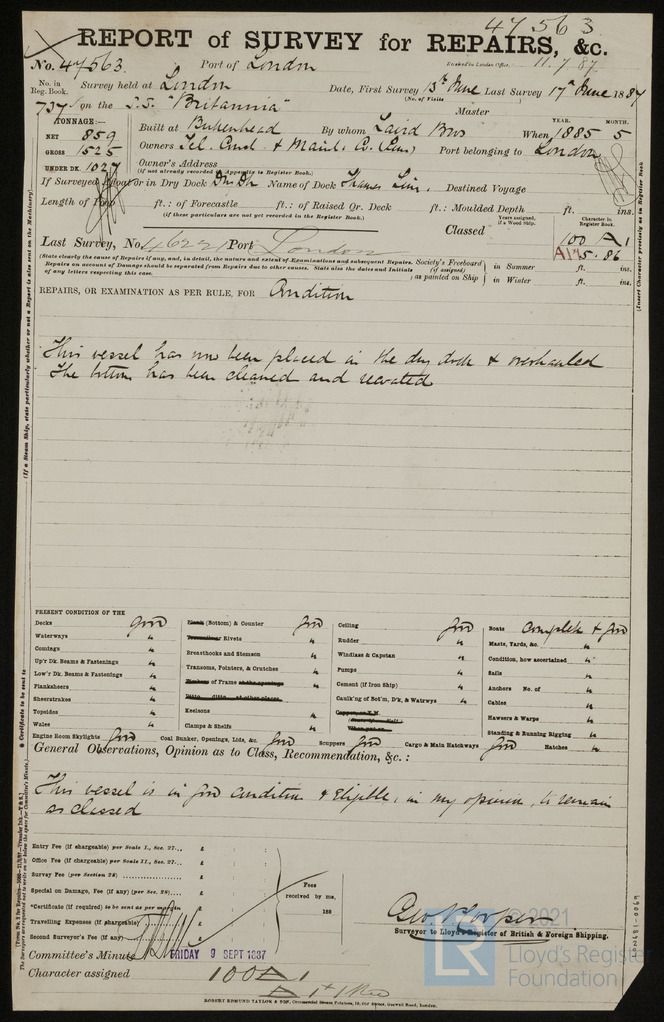 47563
REPORT of SURVEY for REPAIRS, &c.
No. 47563. Port of London Received in London Office, 11.7.87
No. in Reg. Book. Survey held at London Date, First Survey 13th June Last Survey 17th June 1887
(No. of Visits
737 on the S.S. "Britannia" Master
TONNAGE:— YEAR. MONTH.
NET 859 Built at Birkenhead By whom Laird Bros When 1885 5
GROSS 1525 Owners Tel. Const. & Maint. Co. Port belonging to London
UNDER DK. 1027 Owner's Address
(if not already recorded in Appendix to Register Book.)
If Surveyed Afloat or in Dry Dock Dry Dk Name of Dock Thames Destined Voyage
Length of Poop ft.: of Forecastle ft.: of Raised Qr. Deck ft.: Moulded Depth ft. ins.
(if these particulars are not yet recorded in the Register Book.)
Years assigned, if a Wood Ship. Character in Register Book.
Classed 100 A 1
Last Survey, No. Port London 5.86
(State clearly the cause of Repairs if any, and, in detail, the nature and extent of Examinations and subsequent Repairs. Repairs on account of Damage should be separated from Repairs due to other causes. State also the dates and Initials of any letters respecting this case.
Society's Freeboard (if assigned) as painted on Ship in Summer ft. ins.
in Winter ft. ins.
REPAIRS, OR EXAMINATION AS PER RULE, FOR Condition
This vessel has now been placed in the dry dock & overhauled
The bottom has been cleaned and recoated
PRESENT CONDITION OF THE
Decks good
Waterways "
Comings "
Up'r Dk. Beams & Fastenings "
Low'r Dk. Beams & Fastenings "
Planksheers "
Sheerstrakes "
Topsides "
Wales "
Engine Room Skylights good
Plank (Bottom) & Counter good
Treenails or Rivets "
Breasthooks and Stemson "
Transoms, Pointers, & Crutches "
Timbers of Frame at the openings "
Ditto ditto at other places
Keelsons "
Clamps & Shelfs "
Coal Bunker, Openings, Lids, &c. good
Ceiling good
Rudder "
Windlass & Capstan "
Pumps "
Cement (if Iron Ship) "
Caulk'ng of Bot'm, D'k, & Watrwys "
Scuppers good
Cargo & Main Hatchways good
Boats Complete & good
Masts, Yards, &c. "
Condition, how ascertained "
Sails "
Anchors No. of "
Cables "
Hawsers & Warps "
Standing & Running Rigging "
Hatches "
General Observations, Opinion as to Class, Recommendation, &c.:
This vessel is in good condition & Eligible, in my opinion, to remain
as classed
Entry Fee (if chargeable) per Scale I., Sec. 27... £
Office Fee (if chargeable) per Scale II., Sec. 27... £
Survey Fee (per Section 28) £
Special on Damage, Fee (if any) (per Sec. 28). £
*Certificate (if required) to be sent as per margin £
Travelling Expenses (if chargeable) £
Second Surveyor's Fee (if any) £
Fees received by me,
188
Surveyor to Lloyd's Register of British & Foreign Shipping.
Committee's Minute FRIDAY 9 SEPT 1887
Character assigned 100 A 1
ROBERT EDMUND TAYLOR & SON, London.
(If a Steam Ship, state particularly whether or not a Report is also sent on the Machinery)
(Insert Character precisely as in Register Book
* Certificate to be sent to
LR
© 2021
Lloyd's Register
Foundation